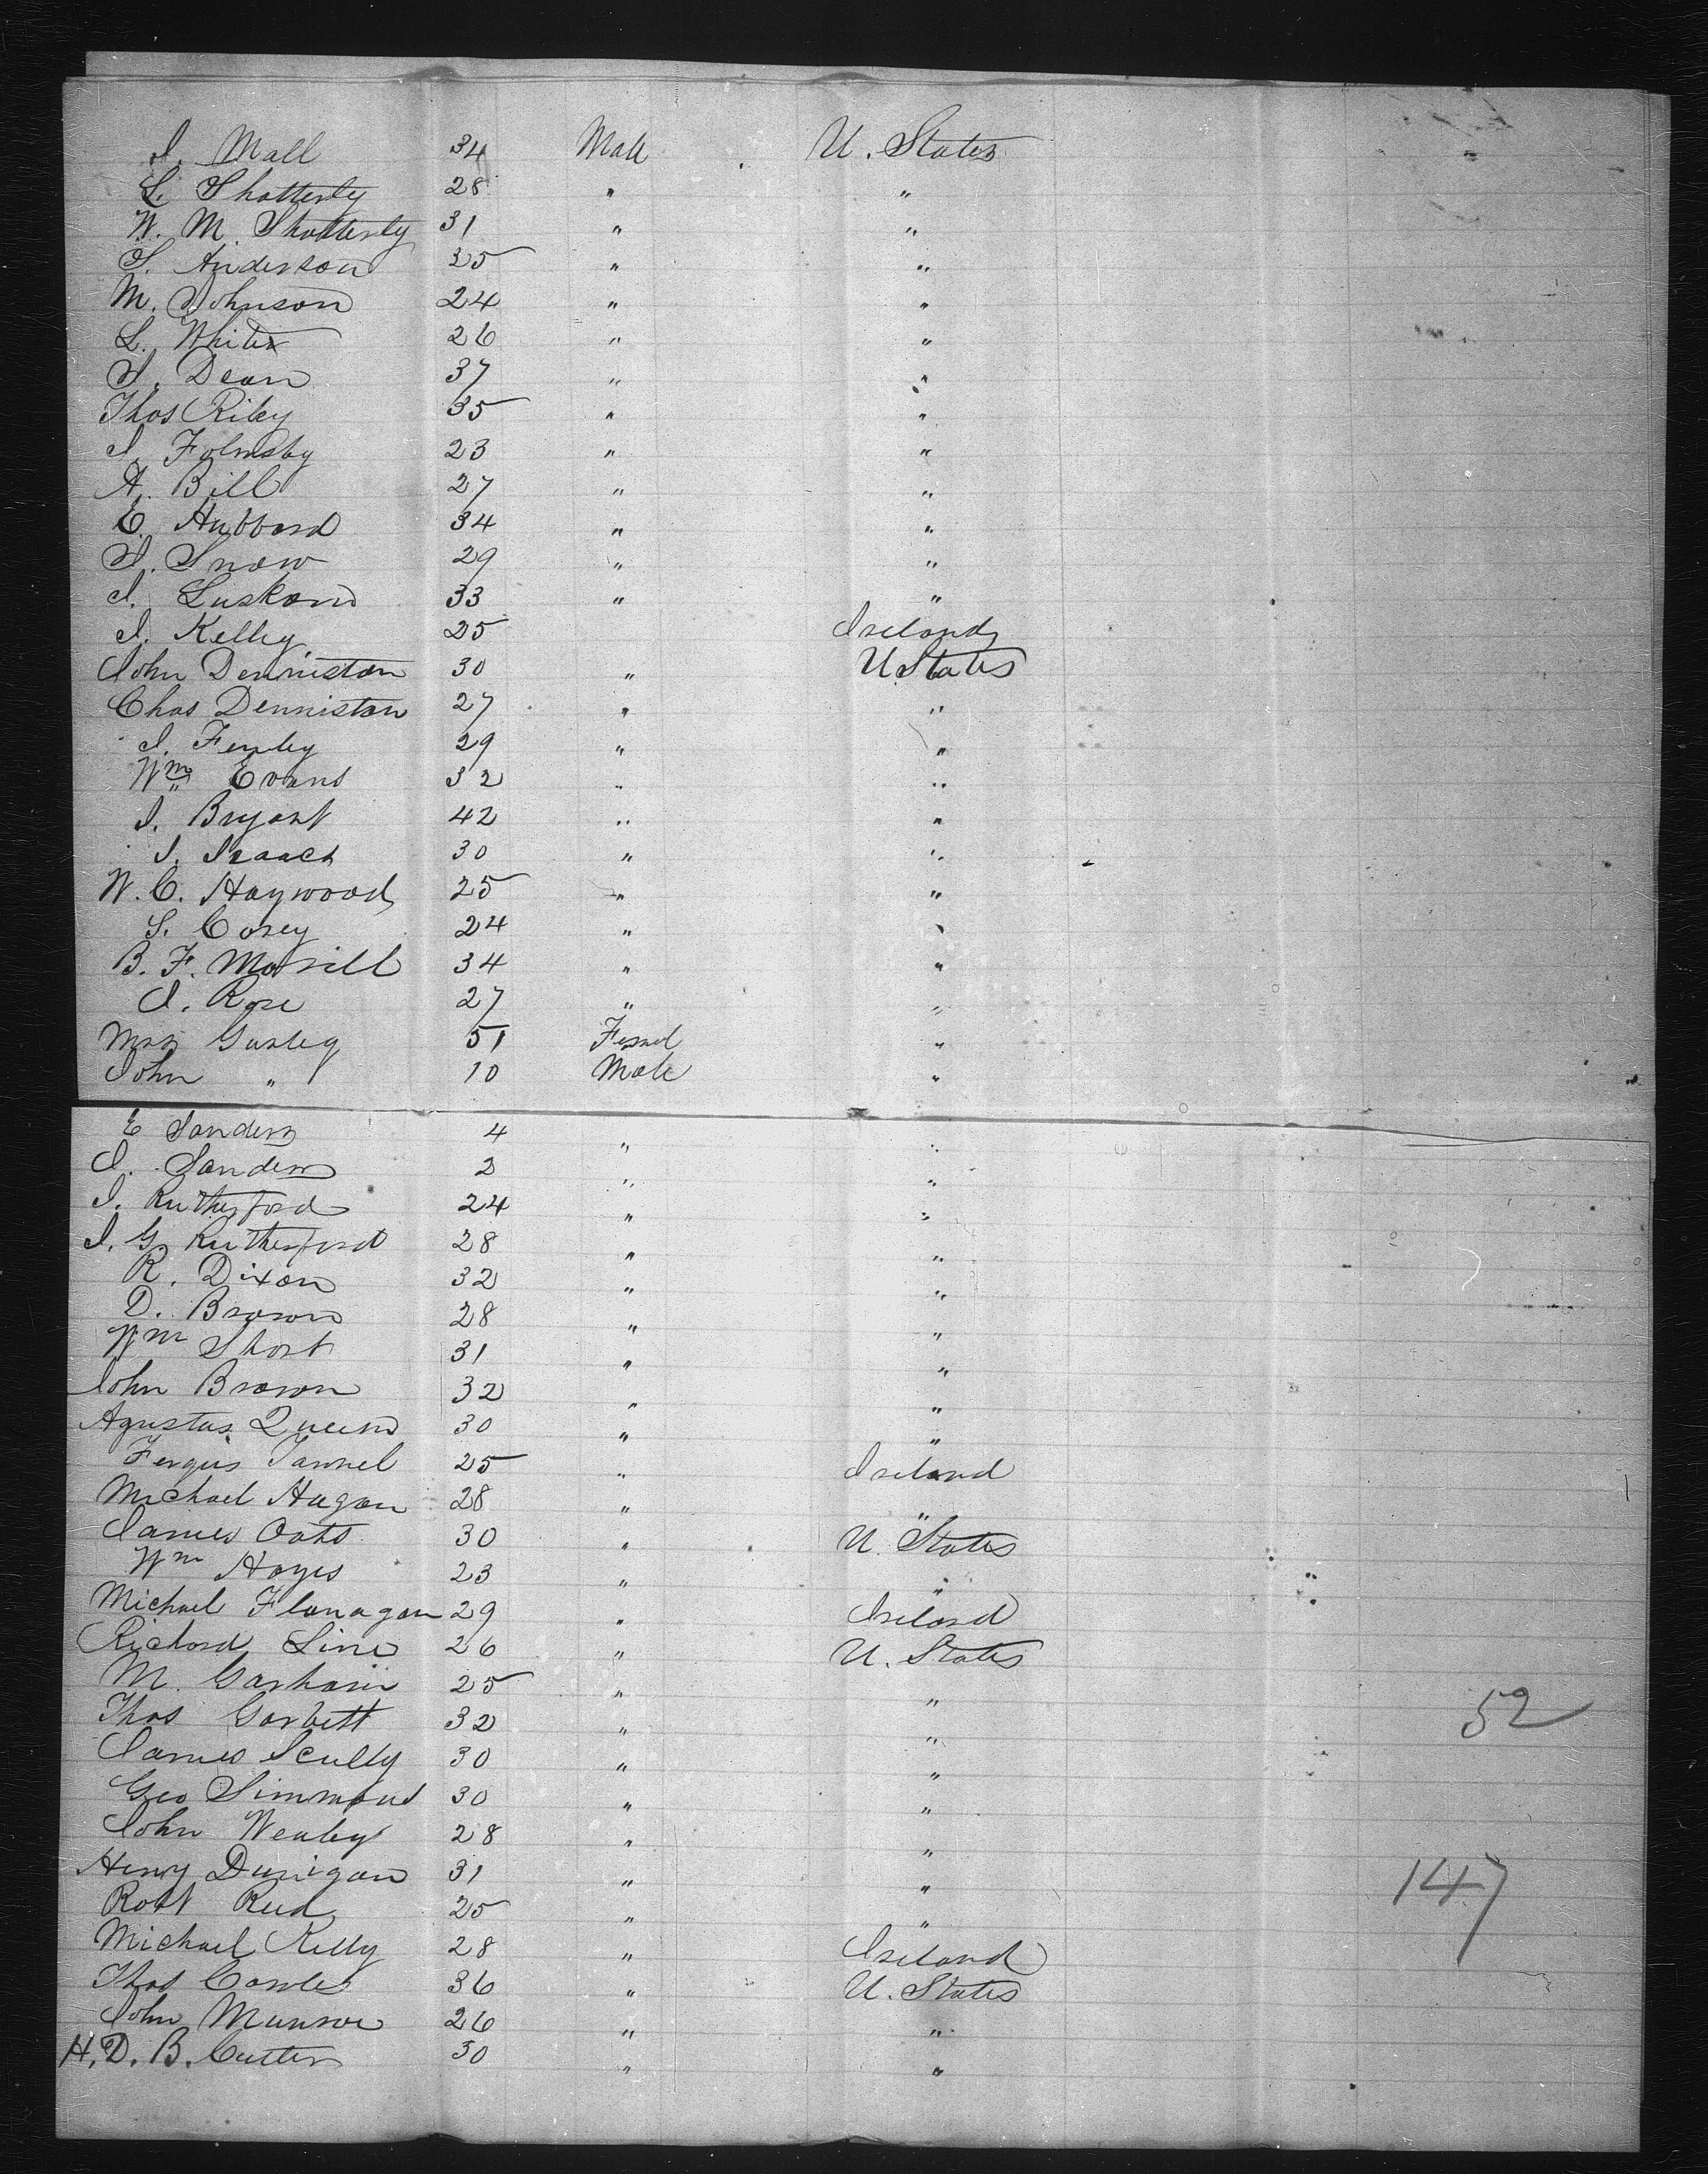 J. Mall 34 Male U. States
L. Shatterly 28 " "
W. M. Shatterly 31 " "
S. Anderson 25 " "
M. Johnson 24 " "
L. White 26 " "
J. Dean 37 " "
Thos Riley 35 " "
J. Folmsby 23 " "
A. Bill 27 " "
E. Hubbard 34 " "
J. Snow 29 " "
J. Luskom 33 " "
J. Kelley 25 Ireland
John Denniston 30 " U States
Chas Denniston 27 " "
J. Fenley 29 " "
Wm Evans 32 " "
J. Bryant 42 " "
J. Isaacs 30 " "
W. C. Haywood 25 " "
S. Corey 24 " "
B. F. Morrill 34 " "
J. Rose 27 " "
Mrs Gurley 51 Femal "
John " 10 Male "
E Sanders 4 " "
J. Sanders 2 " "
J. Rutherford 24 " "
J. G. Rutherford 28 " "
R. Dixon 32 " "
D. Brown 28 " "
Wm Short 31 " "
John Brown 32 " "
Agustus Queen 30 " "
Fergus Tannel 25 " Ireland
Michael Hagan 28 " "
James Oats 30 " U. States
Wm Hayes 23 " "
Michael Flanagan 29 " Ireland
Richard Line 26 " U. States
M. 25 " "
Thos Corbett 32 " " 52
James Scully 30 " "
Geo Simmons 30 " "
John Wealey 28 " "
Henry Dunigan 31 " " 147
Robt Reed 25 " "
Michael Kelly 28 " Ireland
Thos Cowles 36 " U. States
John Munroe 26 " "
H. D. B. Cutter 30 " "